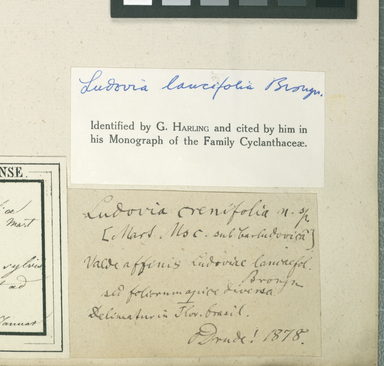 Ludovia lancifolia Brongn.
Identified by G. HARLING and cited by him in
his Monograph of the Family Cyclanthaceæ.
NSE.
Mart
sylvis
ad
Januar
Ludovia crenifolia n. sp
[Mart. Msc. sub Carludovica]
Valde affinis Ludoviae lancifol.
Brongn
sed foliorum apice diversa
Delineatur in Flor. brasil.
O Drude! 1878.